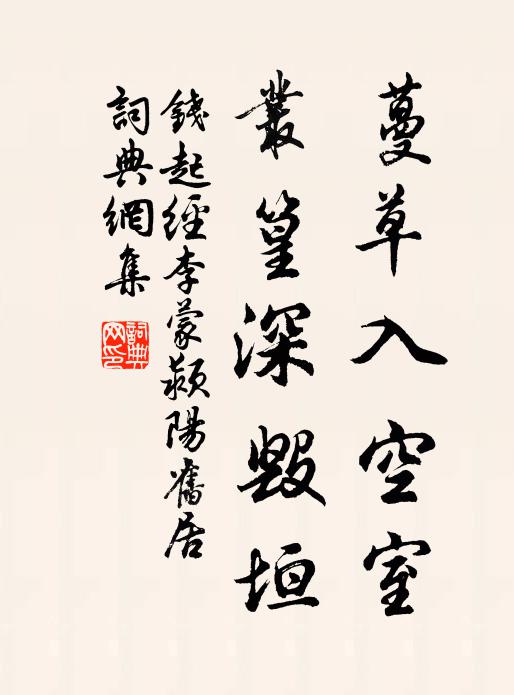 蔓草入空室
叢篁深毀垣
錢起經李蒙潁陽舊居
詞典網集
詞典網印